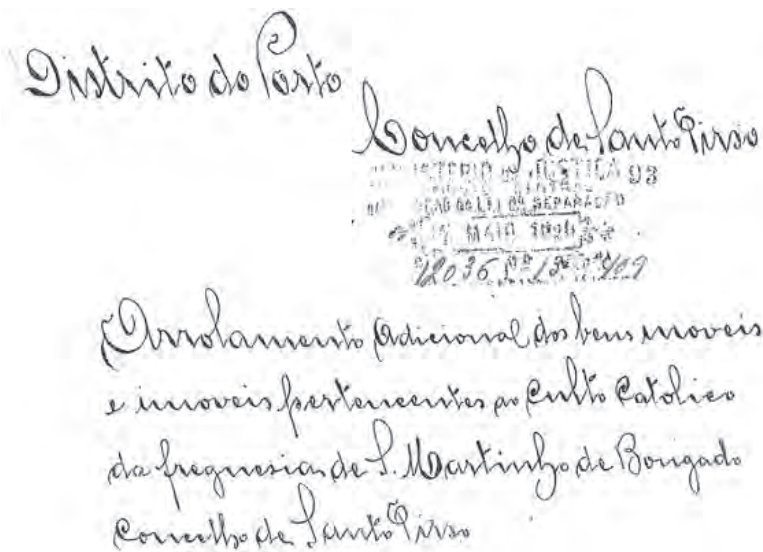 Distrito do Porto
Concelho de Santo Tirso
MINISTERIO DA JUSTIÇA 93
CENTRAL
DA LEI DA SEPARAÇÃO
MAIO
12036
Arrolamento Adicional dos bens moveis
e imoveis pertencentes ao Culto Catolico
da freguesia de S. Martinho de Bougado
Concelho de Santo Tirso